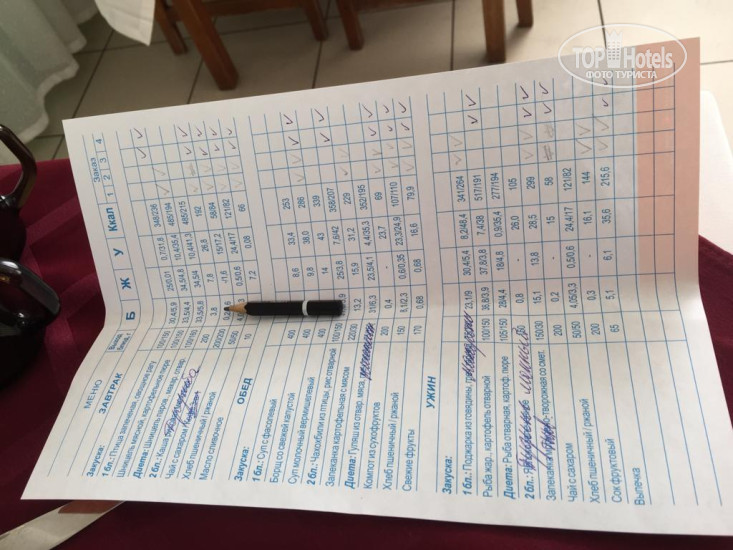 TOP Hotels
ФОТО ТУРИСТА
МЕНЮ
Выход блюд, г. Б Ж У Ккал Заказ
1 2 3 4
ЗАВТРАК
Закуска:
1 бл.: Птица запеченная, овощное рагу 100/150 30,4/5,9 25/0,01 0,7/31,8 348/236
Шницель мясной, картофельное пюре 100/150 33,5/4,4 34,5/4,8 10,4/35,4 485/194
Диета: Шницель паров., отвар. 33,5/5,8 34,5/4 10,4/41,3 485/215
2 бл.: Каша 200 3,8 7,8 26,8 192
Чай с сахаром 200/200 15/17,2 58/64
Хлеб пшеничный / ржаной 50/50 0,5/0,6 24,4/17 121/82
Масло сливочное 10 7,2 0,08 66
ОБЕД
Закуска:
1 бл.: Суп с фасолевый 400 8,6 33,4 253
Борщ со свежей капустой 400 9,8 38,0 286
Суп молочный вермишелевый 400 14 43 339
2 бл.: Чахохбили из птицы, рис отварной 100/150 25/3,8 7,6/42 358/207
Запеканка картофельная с мясом 220/30 13,2 15,9 31,2 229
Диета: Гуляш из отвар. мяса, 31/6,3 23,5/4,1 4,4/35,3 352/195
Компот из сухофруктов 200 0,4 - 23,7 69
Хлеб пшеничный / ржаной 150 8,1/2,3 0,6/0,35 23,3/24,9 107/110
Свежие фрукты 170 0,68 0,68 16,6 79,9
УЖИН
Закуска:
1 бл.: Поджарка из говядины, 23,1/9 30,4/5,4 8,2/48,4 341/264
Рыба жар., картофель отварной 100/150 36,8/3,9 37,8/3,8 7,4/38 517/191
Диета: Рыба отварная, картоф.пюре 105/150 28/4,4 18/4,8 0,9/35,4 277/194
2 бл.: 0,8 - 26,0 105
Запеканка -творожная со смет. 150/30 15,1 13,8 26,5 299
Чай с сахаром 200 0,2 - 15 58
Хлеб пшеничный / ржаной 50/50 4,05/3,3 0,5/0,6 24,4/17 121/82
Сок фруктовый 200 0,3 - 16,1 144
Выпечка 65 5,1 6,1 35,6 215,6